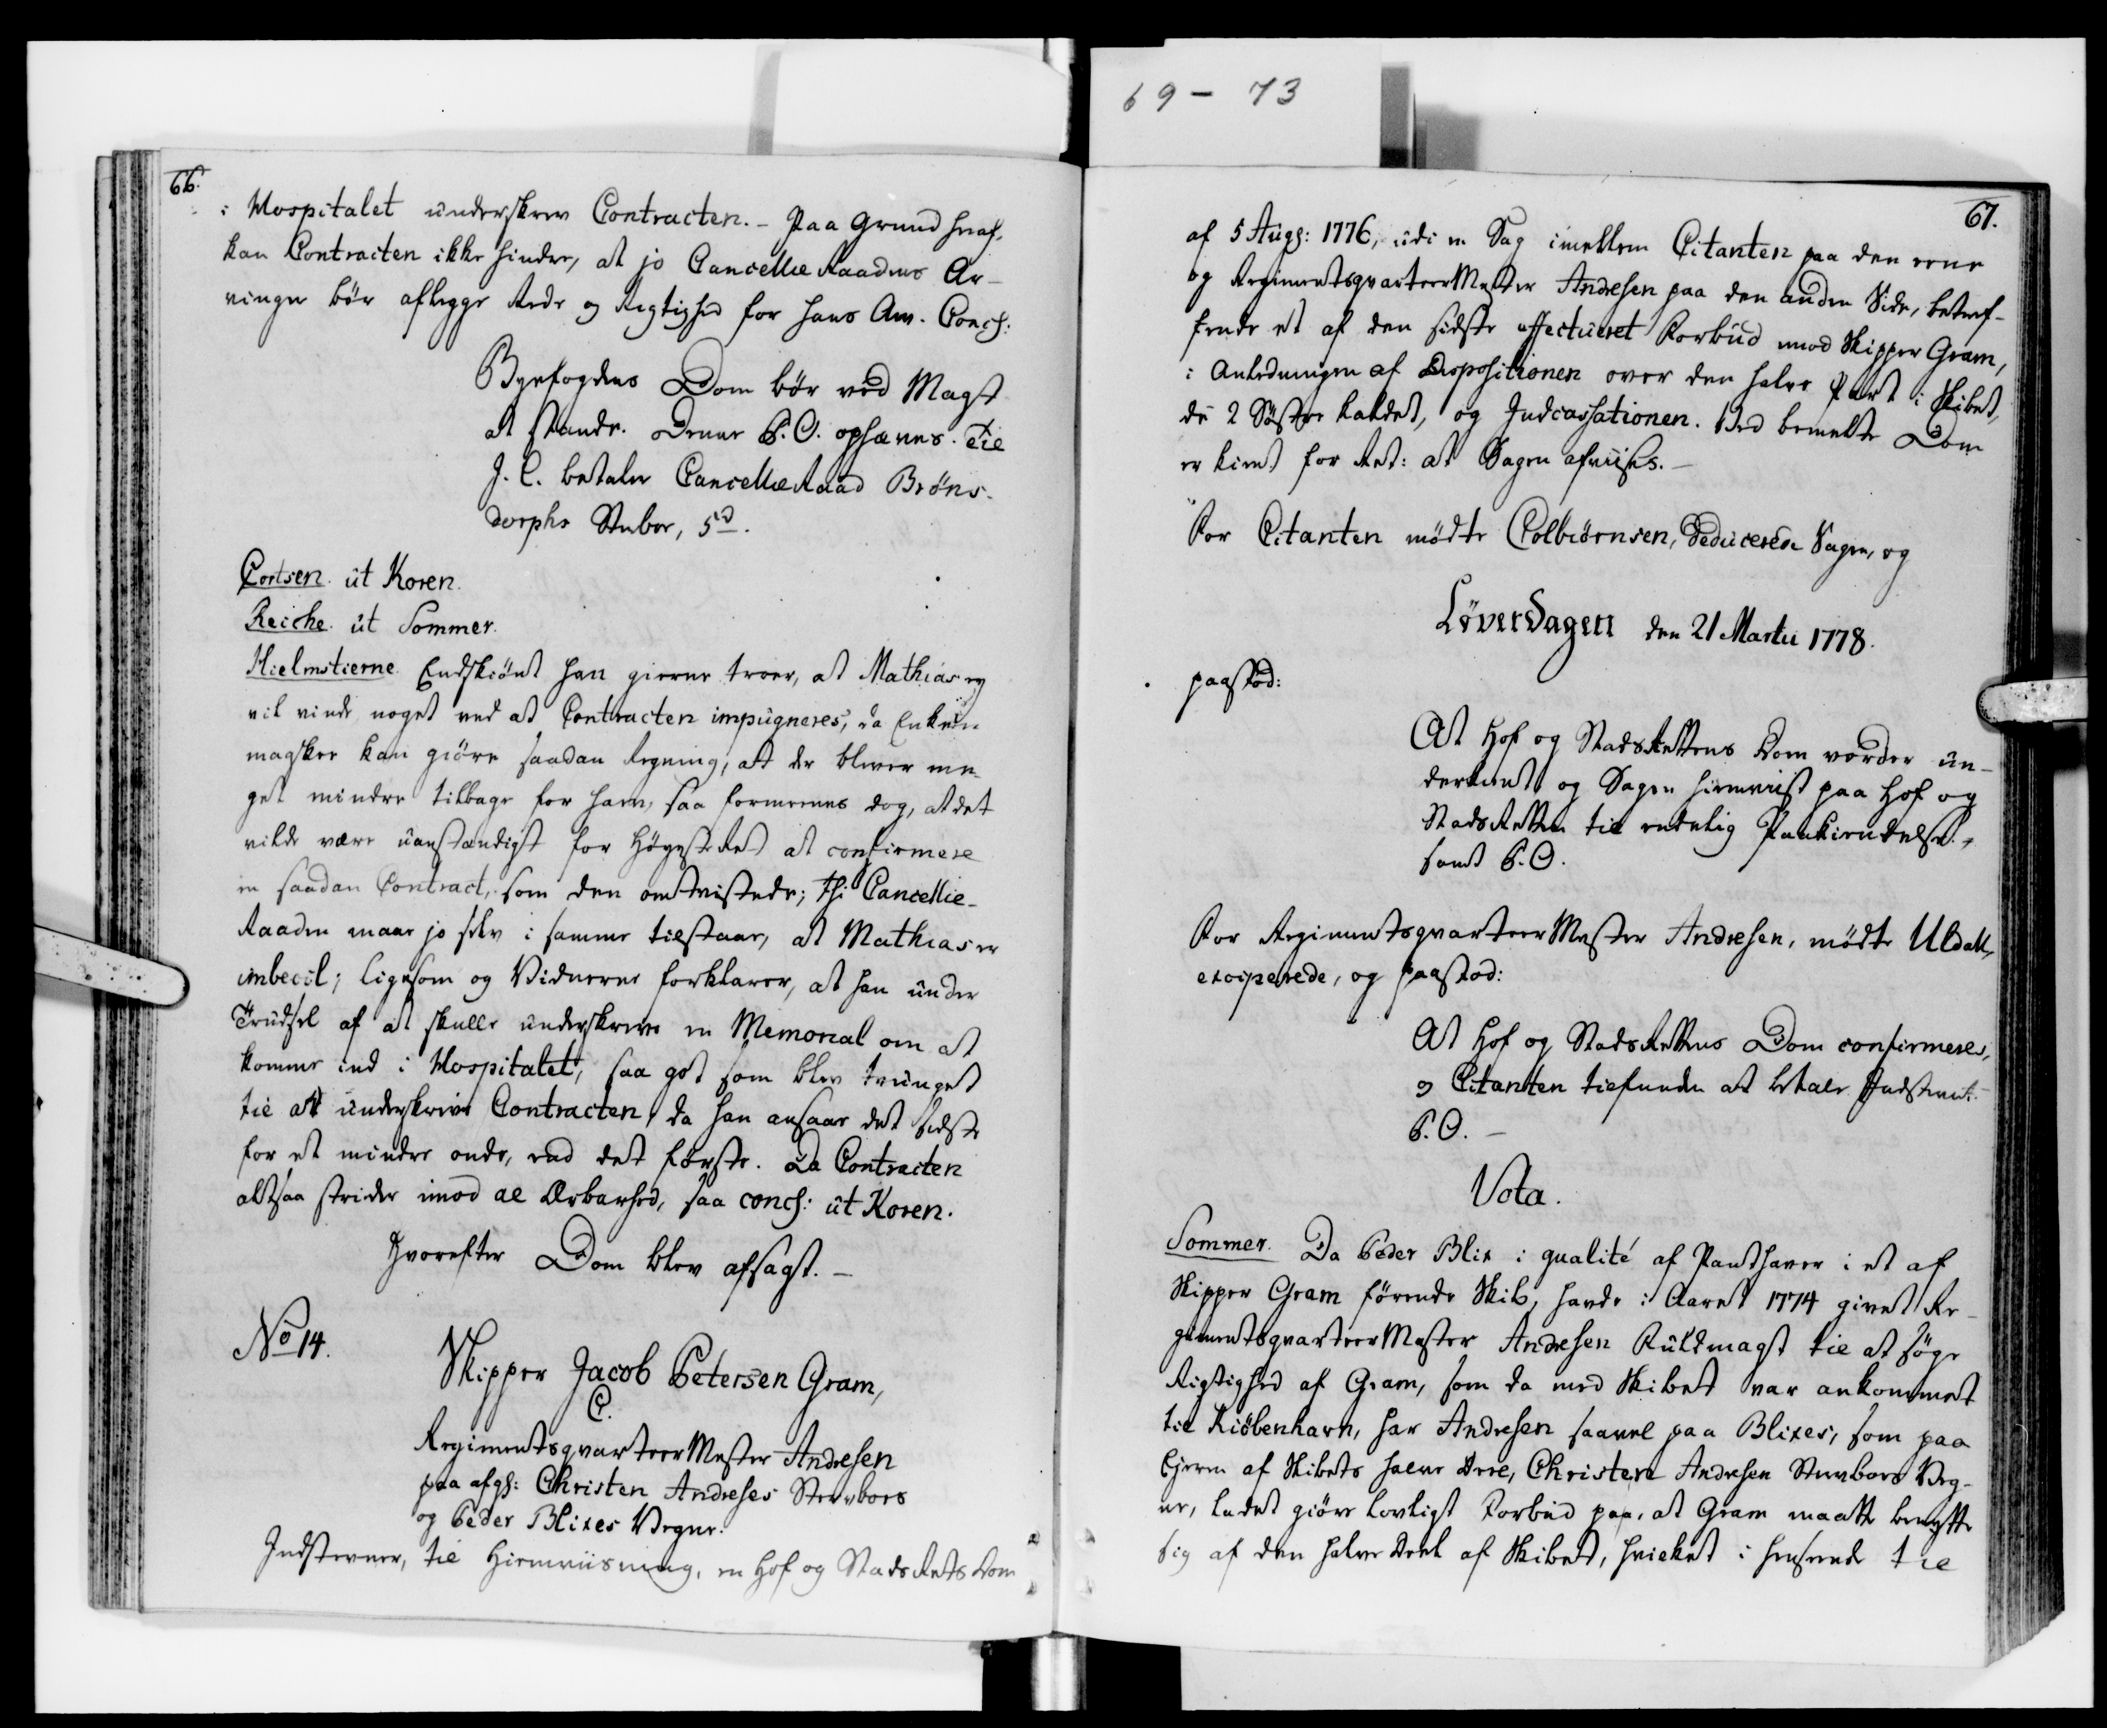 69 - 73
66.
i Hospitalet underskrev Contracten. - Paa Grund heraf,
kan Contracten ikke hindre, at jo CancellieRaadens Ar-
vinger bör aflegge Rede og Rigtighed for hans Arv. Concl:
Byefogdens Dom bör ved Magt
at stande. Denne P. O. ophæves. Til
J. C. betaler CancellieRaad Bröns-
dorphs Sterboe, 5 d.
Cortsen. ut Koren.
Reiche. ut Sommer.
Hielmstierne. Endskiönt han gierne troer, at Mathias ey
vil vinde noget ved at Contracten impugneres, da Enken
maaskee kan giöre saadan Regning, at der bliver me-
get mindre tilbage for ham, saa formeenes dog, at det
vilde være uanstændigt for HöyesteRet at confirmere
en saadan Contract, som den omtvistede; thi Cancellie-
Raaden maae jo selv i samme tilstaae, at Mathias er
imbecil; ligesom og Vidnerne forklarer, at han under
Trudsel af at skulle underskrive en Memorial om at
komme ind i Hospitalet, saa got som blev tvunget
til at underskrive Contracten, da han ansaae det sidste
for et mindre onde, end det förste. Da Contracten
altsaa strider imod al Ærbarhed, saa concl: ut Koren.
Hvorefter Dom blev afsagt. -
No 14.
Skipper Jacob Petersen Gram,
C.
RegimentsqvarteerMester Andresen
paa afgl: Christen Andreses Sterboes
og Peder Blixes Vegne.
Indstevner, til Hiemviisning, en Hof og StadsRets Dom
67.
af 5 Augs: 1776, udi en Sag imellem Citanten paa den eene
og RegimentsqvarteerMester Andresen paa den anden Side, betref-
fende et af den sidste effectueret Forbud imod Skipper Gram,
i Anledningen af Dispositionen over den halve Part i Skibet,
de 2 Söstre kaldet, og Indcassationen. Ved bemelte Dom
er kient for Ret: at Sagen afviises. -
For Citanten mödte Colbiörnsen, deducerede Sagen, og
Löverdagen den 21 Martii 1778.
paastod:
At Hof og StadsRettens Dom vorder un-
derkient og Sagen hiemviist paa Hof og
StadsRetten til endelig Paakiendelse,
samt P. O.
For RegimentsqvarteerMester Andresen, mödte Uldall,
exciperede, og paastod:
At Hof og StadsRettens Dom confirmeres,
og Citanten tilfunden at betale Indstevnt.
P. O. -
Vota.
Sommer. Da Peder Blix i qualité af Panthaver i et af
Skipper Gram förende Skib, havde i Aaret 1774 givet Re-
gimentsqvarteerMester Andresen Fuldmagt til at söge
Rigtighed af Gram, som da med Skibet var ankommet
til Kiöbenhavn, har Andresen saavel paa Blixes, som paa
Ejeren af Skibets halve Deel, Christen Andresen Sterboes Veg-
ne, ladet giöre lovligt Forbud paa, at Gram maatte benytte
sig af den halve Deel af Skibet, hvilket i henseende til